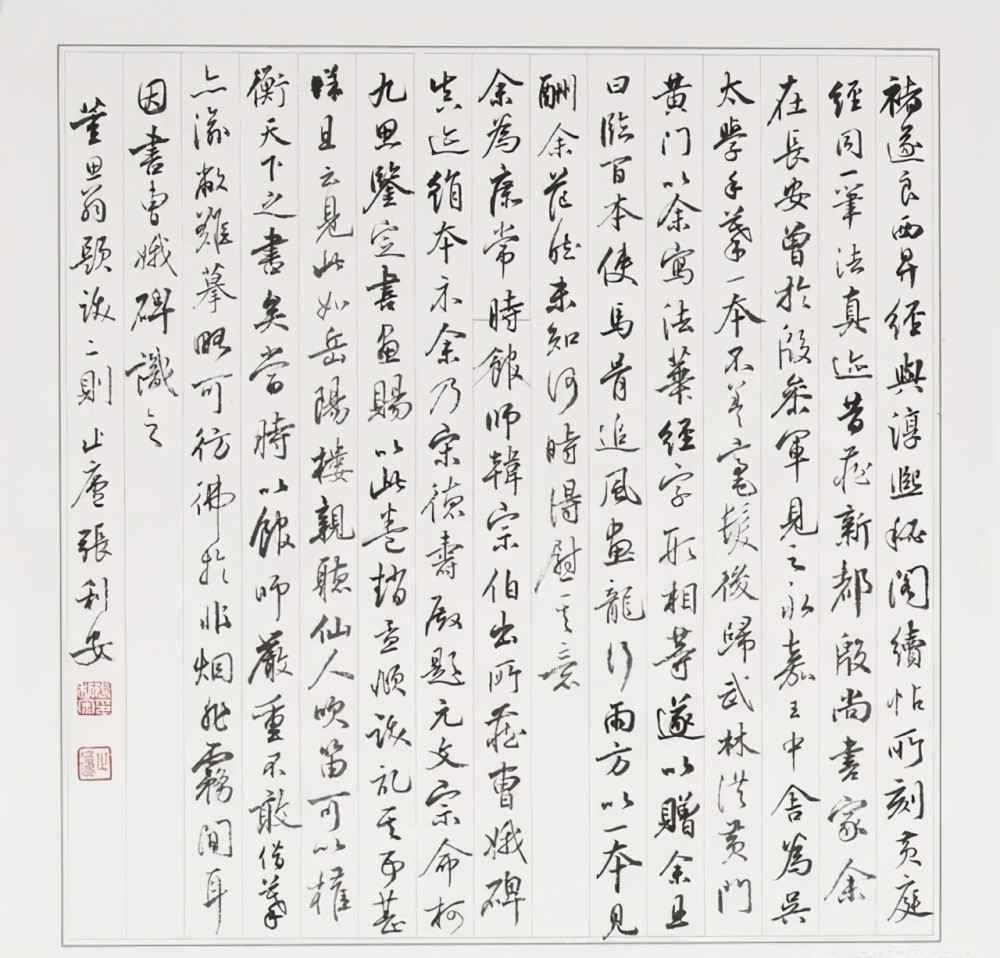 褚遂良西昇经與淳熙秘阁續帖所刻黄庭
经同一筆法真迹昔藏新都殷尚書家余
在長安曾於殷参軍見之永嘉王中舍為吴
太學手摹一本不差毫髮後歸武林洪黄門
黄门以余寫法華经字形相等遂以贈余且
曰臨百本使馬骨追風畫龍行雨方以一本見
酬余茫然未知何時得慰其意
余為庶常時館师韓宗伯出所藏曹娥碑
真迹绢本示余乃宋德壽殿题元文宗命柯
九思鑒定書画賜以此卷趙孟頫跋記其事甚
详且云見此如岳陽楼親聽仙人吹笛可以權
衡天下之書矣當時以館师嚴重不敢借摹
亦渝敝難摹略可彷彿於非烟非霧間耳
因書曹娥碑識之
董思翁题跋二則止廬張利安